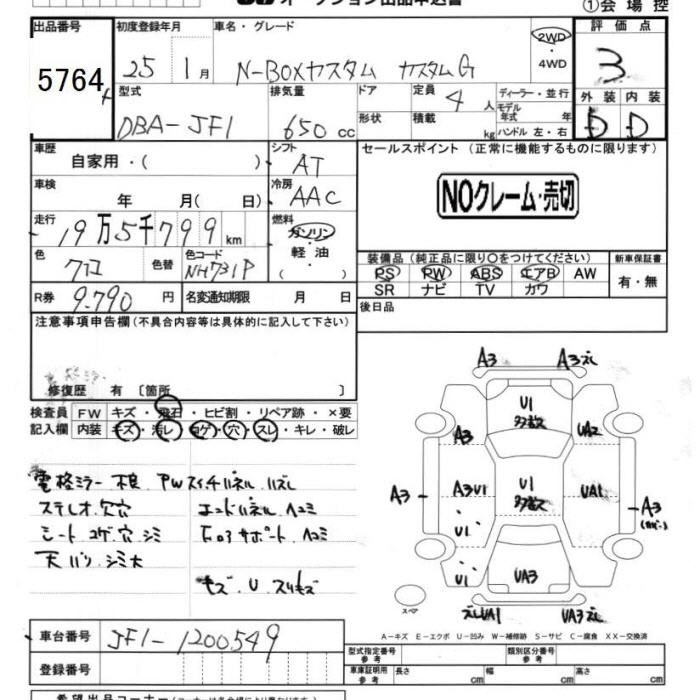 オークション出品申込書
①会場控
出品番号 初度登録年月 車名・グレード 評価点
5764 25 1月 N-BOXカスタム カスタムG 2WD ・ 4WD 3
型式 排気量 ドア 定員 4人 ディーラー・並行 外装 内装
DBA-JF1 650cc 形状 積載 kg モデル年式 年 ハンドル 左・右 D D
車歴 自家用・( ) シフト AT セールスポイント (正常に機能するものに限ります)
車検 年 月( 日) 冷房 AAC NOクレーム・売切
走行 19万5千799km 燃料 ガソリン・軽油
装備品 (純正品に限り○をつけてください) 新車保証書
色 クロ 色替 色コード NH731P PS PW ABS エアB AW 有・無
SR ナビ TV カワ
R券 9.790円 名変通知期限 月 日 後日品
注意事項申告欄 (不具合内容等は具体的に記入して下さい)
修復歴 有 〔箇所 〕
検査員 FW キズ・飛石・ヒビ割・リペア跡・×要
記入欄 内装 キズ・汚レ・コゲ・穴・スレ・キレ・破レ
電格ミラー不良. PWスイッチパネル ハズレ
ステレオ.欠穴 エンドパネル.ヘコミ
シート コゲ.穴.シミ Fロアサポート.ヘコミ
天バリ.シミ大
キズ.U.スリキズ
A3 A3ズレ
U1 多数
A3 UA2
A3 A3U1 U1 多数 UA1 A3
U1
U1 UA3
スペア ズレUA1 UA3ズレ
A-キズ E-エクボ U-凹み W-補修跡 S-サビ C-腐食 XX-交換済
車台番号 JF1-1200549
型式指定番号 参考 類別区分番号 参考
登録番号 車庫証明用 参考 長さ cm 幅 cm 高さ cm
希望出品コーナー